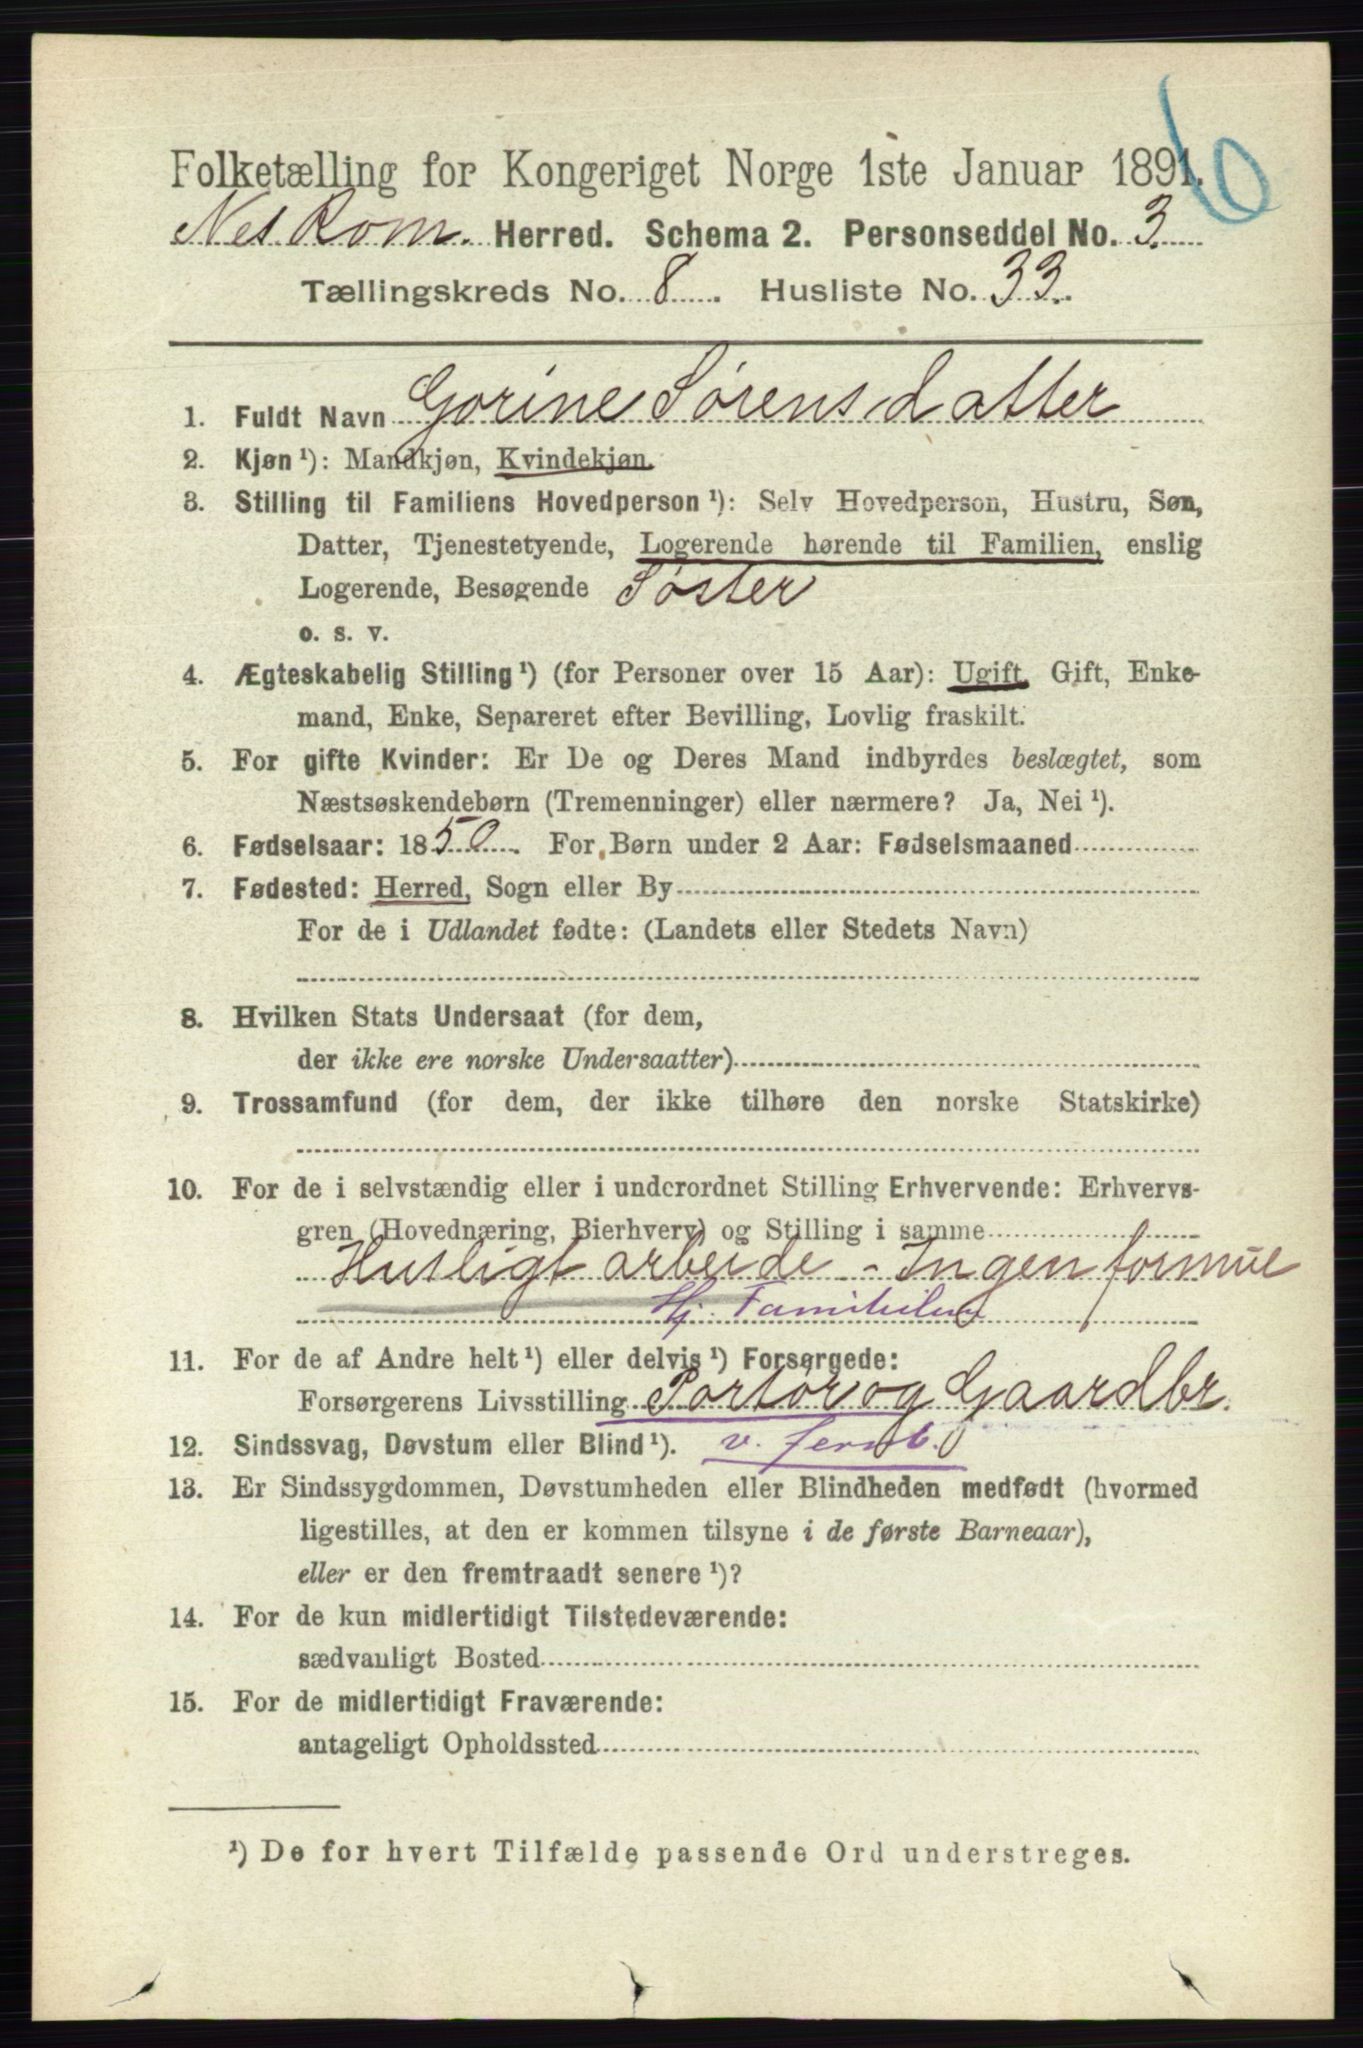 6
Folketælling for Kongeriget Norge 1ste Januar 1891.
Nes Rom. Herred. Schema 2. Personseddel No. 3.
Tællingskreds No. 8. Husliste No. 33.
1. Fuldt Navn Gorine Sørensdatter
2. Kjøn ¹): Mandkjøn, Kvindekjøn.
3. Stilling til Familiens Hovedperson ¹): Selv Hovedperson, Hustru, Søn,
Datter, Tjenestetyende, Logerende hørende til Familien, enslig
Logerende, Besøgende Søster
o. s. v.
4. Ægteskabelig Stilling ¹) (for Personer over 15 Aar): Ugift, Gift, Enke-
mand, Enke, Separeret efter Bevilling, Lovlig fraskilt.
5. For gifte Kvinder: Er De og Deres Mand indbyrdes beslægtet, som
Næstsøskendebørn (Tremenninger) eller nærmere? Ja, Nei ¹).
6. Fødselsaar: 1850. For Børn under 2 Aar: Fødselsmaaned
7. Fødested: Herred, Sogn eller By
For de i Udlandet fødte: (Landets eller Stedets Navn)
8. Hvilken Stats Undersaat (for dem,
der ikke ere norske Undersaatter)
9. Trossamfund (for dem, der ikke tilhøre den norske Statskirke)
10. For de i selvstændig eller i underordnet Stilling Erhvervende: Erhvervs-
gren (Hovednæring, Bierhverv) og Stilling i samme
Husligt arbeide - Ingen formue
Hj.
11. For de af Andre helt ¹) eller delvis ¹) Forsørgede:
Forsørgerens Livsstilling Portør og Gaardbr.
12. Sindssvag, Døvstum eller Blind ¹). v. Jernb.
13. Er Sindssygdommen, Døvstumheden eller Blindheden medfødt (hvormed
ligestilles, at den er kommen tilsyne i de første Barneaar),
eller er den fremtraadt senere ¹)?
14. For de kun midlertidigt Tilstedeværende:
sædvanligt Bosted
15. For de midlertidigt Fraværende:
antageligt Opholdssted
¹) De for hvert Tilfælde passende Ord understreges.